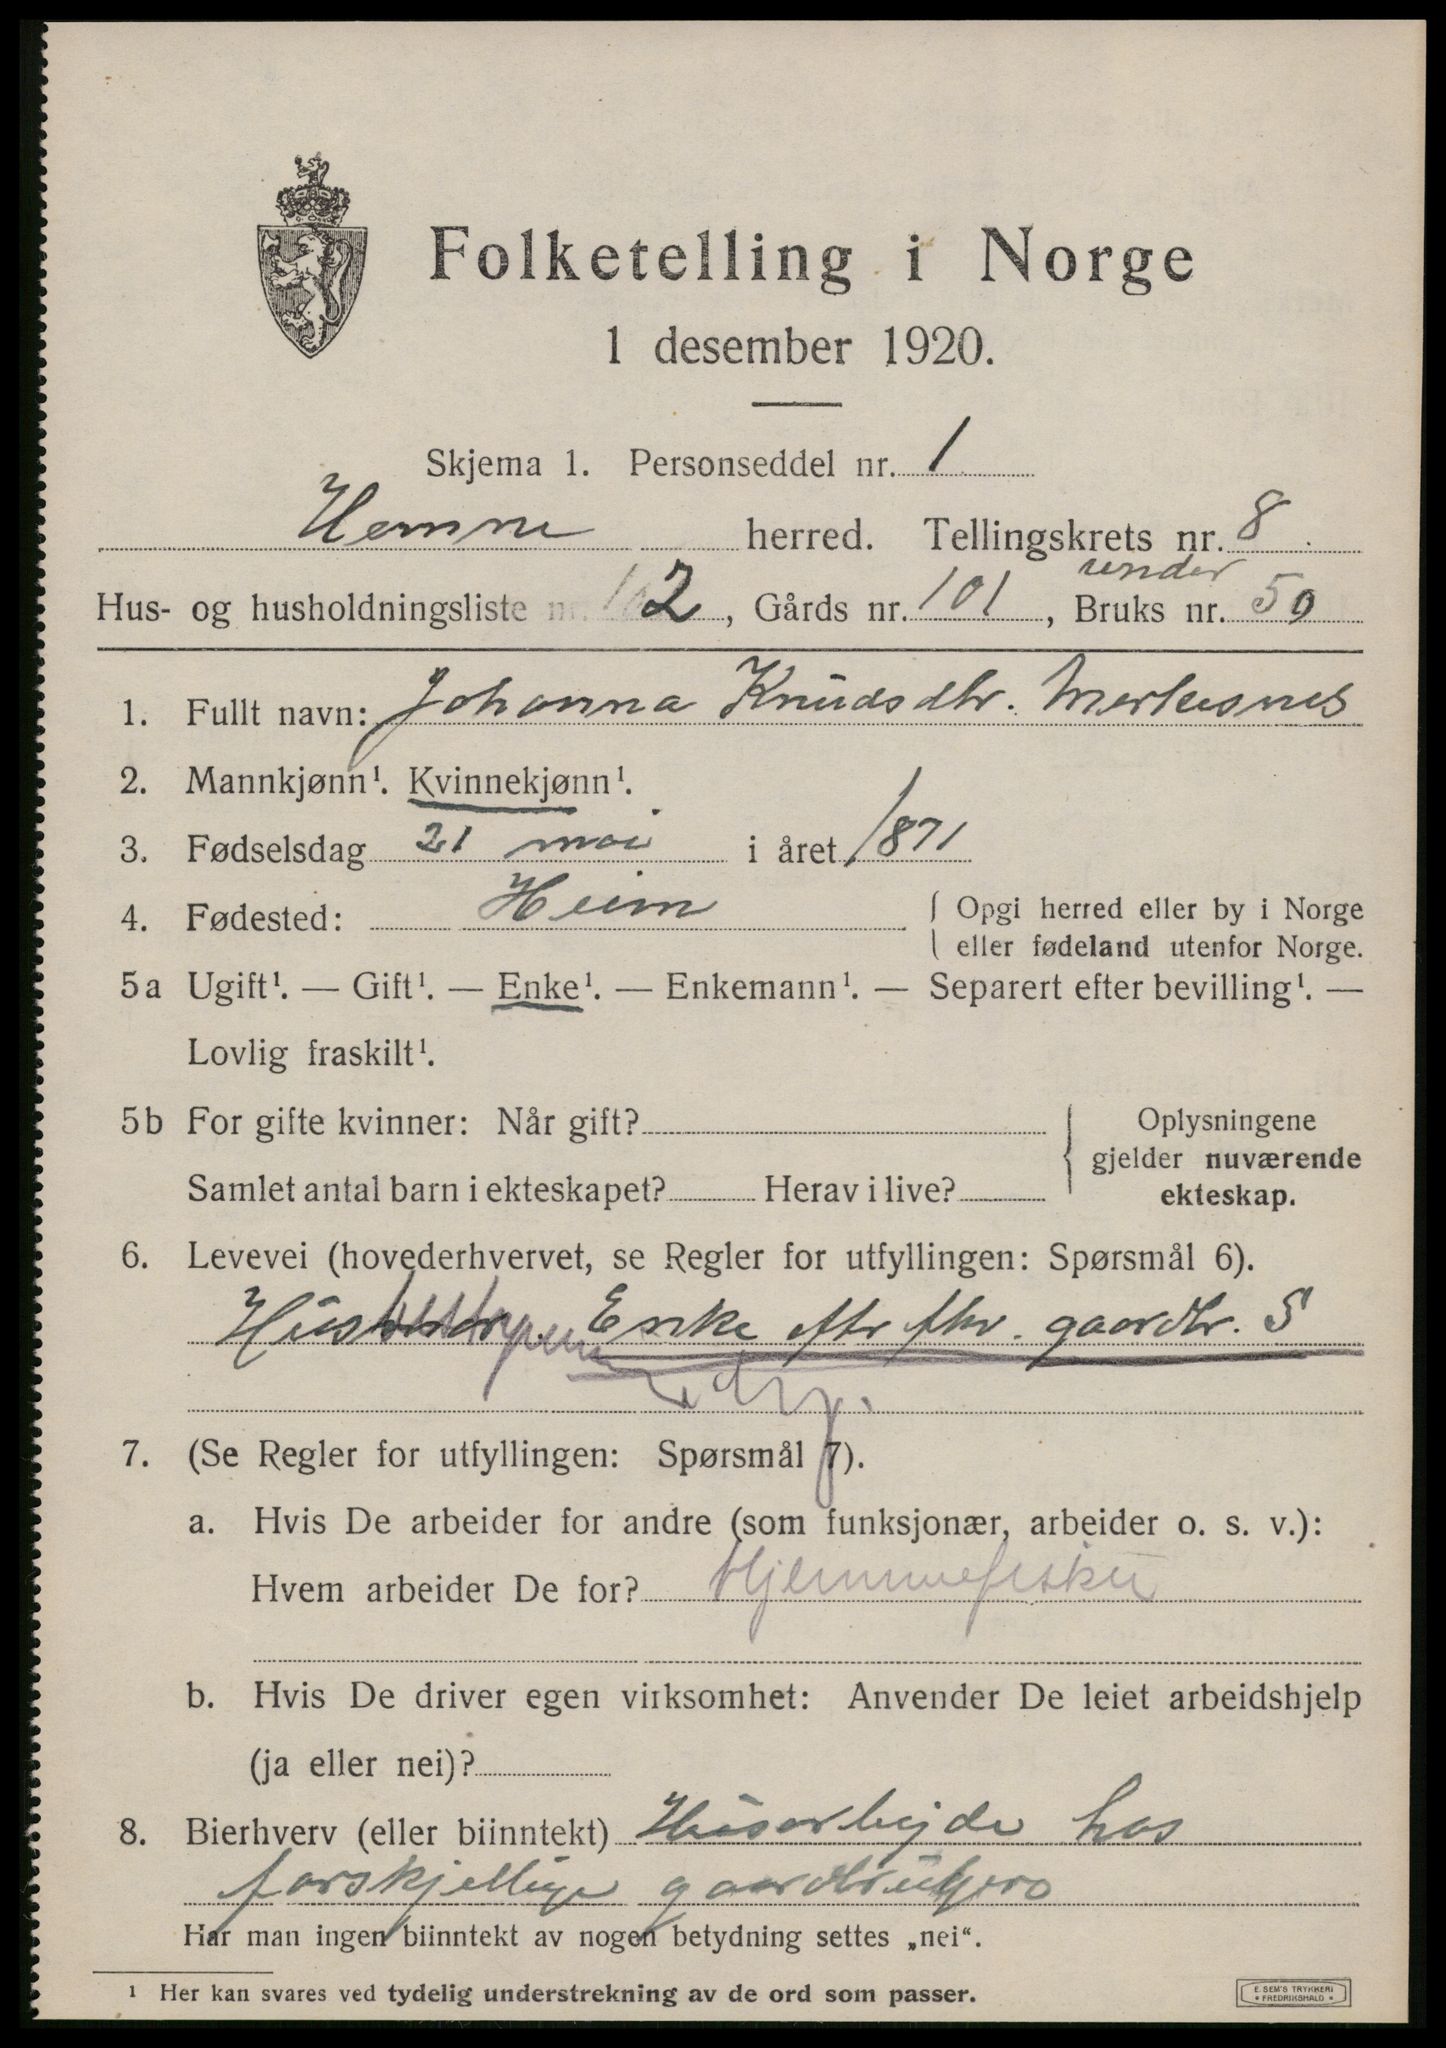 Folketelling i Norge
1 desember 1920.
Skjema 1. Personseddel nr. 1
Hemne herred. Tellingskrets nr. 8
under
Hus- og husholdningsliste nr. 102, Gårds nr. 101, Bruks nr. 50
1. Fullt navn: Johanna Knudsdtr. Merkesnes
2. Mannkjønn¹. Kvinnekjønn¹.
3. Fødselsdag 21 mai i året 1871
4. Fødested: Heim { Opgi herred eller by i Norge
eller fødeland utenfor Norge.
5a Ugift¹. — Gift¹. — Enke¹. — Enkemann¹. — Separert efter bevilling¹. —
Lovlig fraskilt¹.
5b For gifte kvinner: Når gift? Oplysningene
gjelder nuværende
Samlet antal barn i ekteskapet? Herav i live? ekteskap.
6. Levevei (hovederhvervet, se Regler for utfyllingen: Spørsmål 6).
Enke eftr fhv. gaardbr. S
7. (Se Regler for utfyllingen: Spørsmål 7).
a. Hvis De arbeider for andre (som funksjonær, arbeider o. s. v.):
Hvem arbeider De for? Hjemmefisker
b. Hvis De driver egen virksomhet: Anvender De leiet arbeidshjelp
(ja eller nei)?
8. Bierhverv (eller biinntekt) Husarbejde hos
forskjellige gaardbrugere
Har man ingen biinntekt av nogen betydning settes „nei“.
¹ Her kan svares ved tydelig understrekning av de ord som passer.
E. SEM'S TRYKKERI
• FREDRIKSHALD •